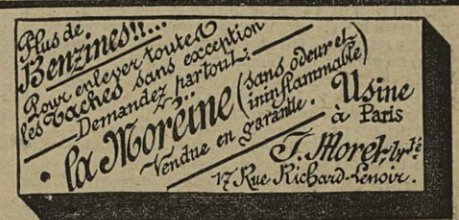 Plus de
Benzines!!...
Pour enlever toutes
les Taches sans exception
Demandez partout:
la Moréine (sans odeur et
ininflammable)
Vendue en garantie.
Usine
à Paris
J. Morel, br.té
17 Rue Richard-Lenoir.